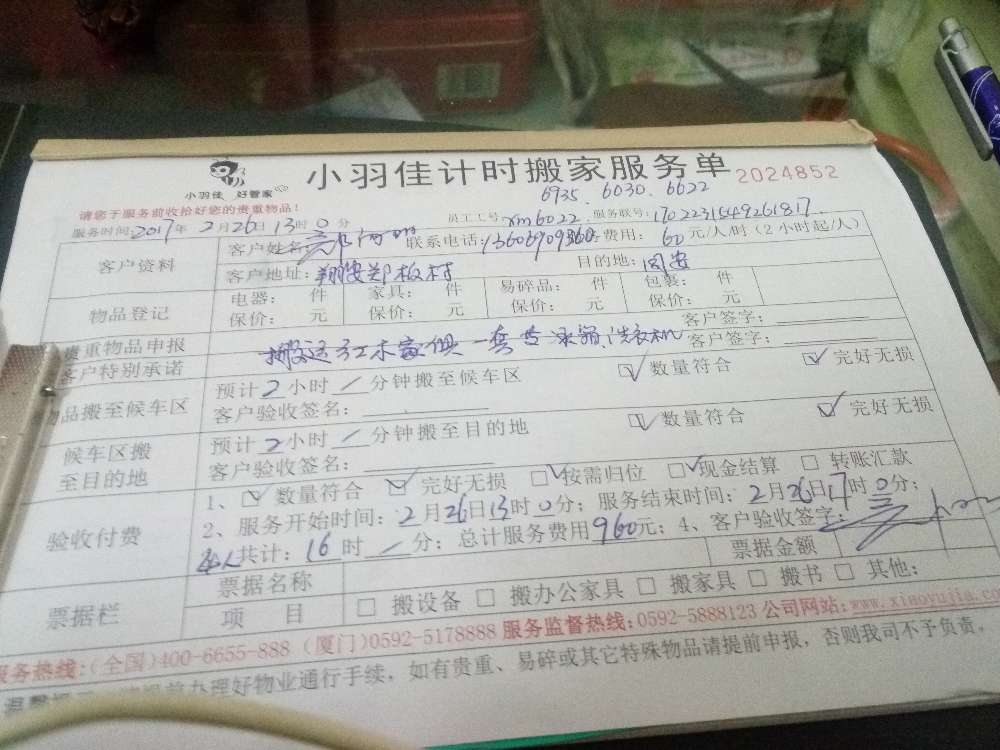 小羽佳 好管家
小羽佳计时搬家服务单 2024852
6935. 6030. 6622
请您于服务前收拾好您的贵重物品!
员工工号:xm6022 服务联号:1702231549261817
服务时间:2017年2月26日13时0分
客户资料
客户姓名: 联系电话: 费用:60元/人/时(2小时起/人)
客户地址:翔安郑坂村 目的地:同安
物品登记
电器: 件 家具: 件 易碎品: 件 包装: 件
保价: 元 保价: 元 保价: 元 保价: 元
贵重物品申报 客户签字:
客户特别承诺 搬运红木家俱一套 冰箱 洗衣机 客户签字:
物品搬至候车区
预计2小时/分钟搬至候车区 ☑数量符合 ☑完好无损
客户验收签名:
候车区搬至目的地
预计2小时/分钟搬至目的地 ☑数量符合 ☑完好无损
客户验收签名:
验收付费
1、☑数量符合 ☑完好无损 ☑按需归位 ☑现金结算 □转账汇款
2、服务开始时间:2月26日13时0分;服务结束时间:2月26日17时0分;
4人共计:16时/分;总计服务费用960元;4、客户验收签字:
票据栏
票据名称 票据金额
项 目 □搬设备 □搬办公家具 □搬家具 □搬书 □其他:
服务热线:(全国)400-6655-888 (厦门)0592-5178888 服务监督热线:0592-5888123 公司网站:www.xiaoyujia.co
办理好物业通行手续,如有贵重、易碎或其它特殊物品请提前申报,否则我司不予负责,